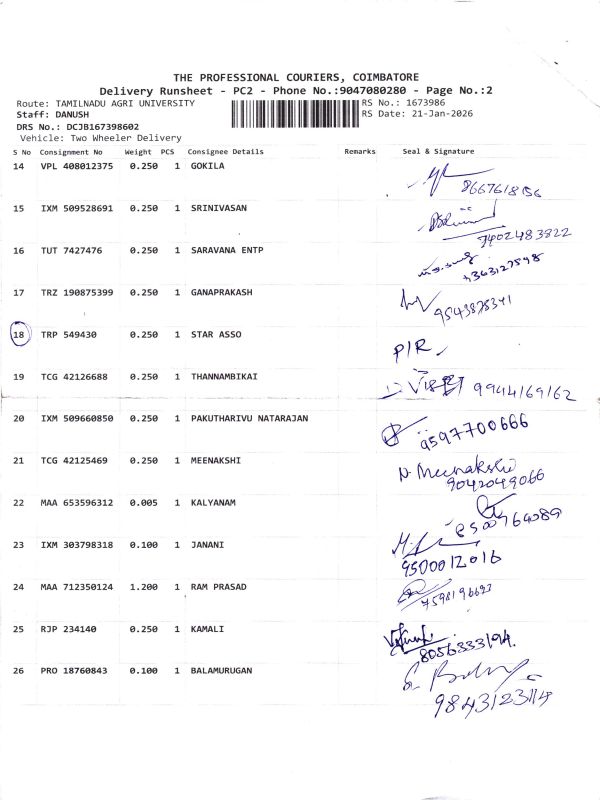 THE PROFESSIONAL COURIERS, COIMBATORE
Delivery Runsheet - PC2 - Phone No.:9047080280 - Page No.:2
Route: TAMILNADU AGRI UNIVERSITY RS No.: 1673986
Staff: DANUSH RS Date: 21-Jan-2026
DRS No.: DCJB167398602
Vehicle: Two Wheeler Delivery
S No Consignment No Weight PCS Consignee Details Remarks Seal & Signature
14 VPL 408012375 0.250 1 GOKILA
8667618156
15 IXM 509528691 0.250 1 SRINIVASAN
7402483822
16 TUT 7427476 0.250 1 SARAVANA ENTP
17 TRZ 190875399 0.250 1 GANAPRAKASH
9543875341
18 TRP 549430 0.250 1 STAR ASSO
P/R
19 TCG 42126688 0.250 1 THANNAMBIKAI
9944169162
20 IXM 509660850 0.250 1 PAKUTHARIVU NATARAJAN
9597700666
21 TCG 42125469 0.250 1 MEENAKSHI
N. Meenakshi
9042049066
22 MAA 653596312 0.005 1 KALYANAM
23 IXM 303798318 0.100 1 JANANI
9500012016
24 MAA 712350124 1.200 1 RAM PRASAD
25 RJP 234140 0.250 1 KAMALI
8056333194.
26 PRO 18760843 0.100 1 BALAMURUGAN
9843123114